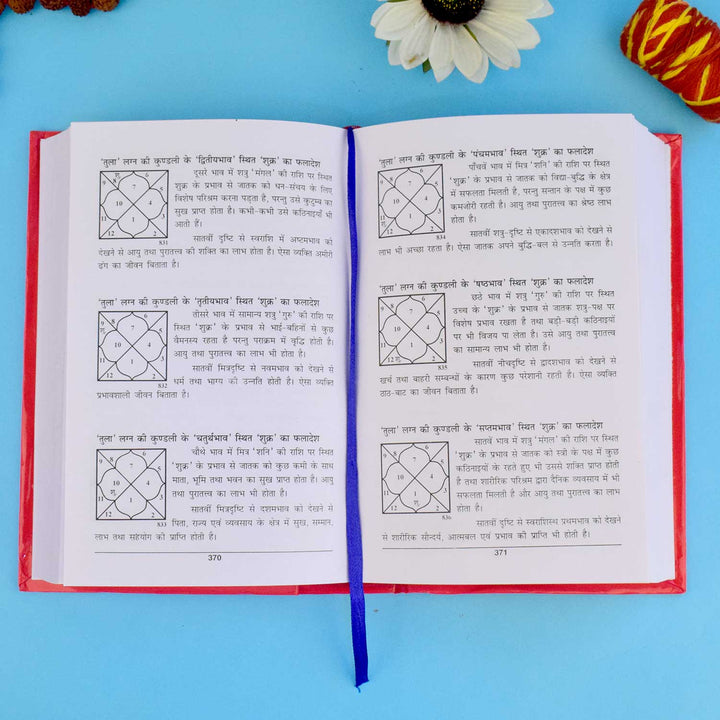 'तुला' लग्न की कुण्डली के 'द्वितीयभाव' स्थित 'शुक्र' का फलादेश
दूसरे भाव में शत्रु 'मंगल' की राशि पर स्थित
'शुक्र' के प्रभाव से जातक को धन-संचय के लिए
विशेष परिश्रम करना पड़ता है, परन्तु उसे कुटुम्ब का
सुख प्राप्त होता है। कभी-कभी उसे कठिनाइयाँ भी
आती हैं।
831
सातवीं दृष्टि से स्वराशि में अष्टमभाव को
देखने से आयु तथा पुरातत्त्व की शक्ति का लाभ होता है। ऐसा व्यक्ति अमीरी
ढंग का जीवन बिताता है।
'तुला' लग्न की कुण्डली के 'तृतीयभाव' स्थित 'शुक्र' का फलादेश
तीसरे भाव में सामान्य शत्रु 'गुरु' की राशि पर
स्थित 'शुक्र' के प्रभाव से भाई-बहिनों से कुछ
वैमनस्य रहता है परन्तु पराक्रम में वृद्धि होती है।
आयु तथा पुरातत्त्व का लाभ भी होता है।
832
सातवीं मित्रदृष्टि से नवमभाव को देखने से
धर्म तथा भाग्य की उन्नति होती है। ऐसा व्यक्ति
प्रभावशाली जीवन बिताता है।
'तुला' लग्न की कुण्डली के 'चतुर्थभाव' स्थित 'शुक्र' का फलादेश
चौथे भाव में मित्र 'शनि' की राशि पर स्थित
'शुक्र' के प्रभाव से जातक को कुछ कमी के साथ
माता, भूमि तथा भवन का सुख प्राप्त होता है। आयु
तथा पुरातत्त्व का लाभ भी होता है।
833
सातवीं मित्रदृष्टि से दशमभाव को देखने से
पिता, राज्य एवं व्यवसाय के क्षेत्र में सुख, सम्मान,
लाभ तथा सहयोग की प्राप्ति होती है।
370
'तुला' लग्न की कुण्डली के 'पंचमभाव' स्थित 'शुक्र' का फलादेश
पाँचवें भाव में मित्र 'शनि' की राशि पर स्थित
'शुक्र' के प्रभाव से जातक को विद्या-बुद्धि के क्षेत्र
में सफलता मिलती है, परन्तु सन्तान के पक्ष में कुछ
कमजोरी रहती है। आयु तथा पुरातत्त्व का श्रेष्ठ लाभ
होता है।
834
सातवीं शत्रु-दृष्टि से एकादशभाव को देखने से
लाभ भी अच्छा रहता है। ऐसा जातक अपने बुद्धि-बल से उन्नति करता है।
'तुला' लग्न की कुण्डली के 'षष्ठभाव' स्थित 'शुक्र' का फलादेश
छठे भाव में शत्रु 'गुरु' की राशि पर स्थित
उच्च के 'शुक्र' के प्रभाव से जातक शत्रु-पक्ष पर
विशेष प्रभाव रखता है तथा बड़ी-बड़ी कठिनाइयों
पर भी विजय पा लेता है। उसे आयु तथा पुरातत्त्व
का सामान्य लाभ भी होता है।
835
सातवीं नीचदृष्टि से द्वादशभाव को देखने से
खर्च तथा बाहरी सम्बन्धों के कारण कुछ परेशानी रहती है। ऐसा व्यक्ति
ठाठ-बाट का जीवन बिताता है।
'तुला' लग्न की कुण्डली के 'सप्तमभाव' स्थित 'शुक्र' का फलादेश
सातवें भाव में शत्रु 'मंगल' की राशि पर स्थित
'शुक्र' के प्रभाव से जातक को स्त्री के पक्ष में कुछ
कठिनाइयों के रहते हुए भी उससे शक्ति प्राप्त होती
है तथा शारीरिक परिश्रम द्वारा दैनिक व्यवसाय में भी
सफलता मिलती है और आयु तथा पुरातत्त्व का लाभ
होता है।
836
सातवीं दृष्टि से स्वराशिस्थ प्रथमभाव को देखने
से शारीरिक सौन्दर्य, आत्मबल एवं प्रभाव की प्राप्ति भी होती है।
371